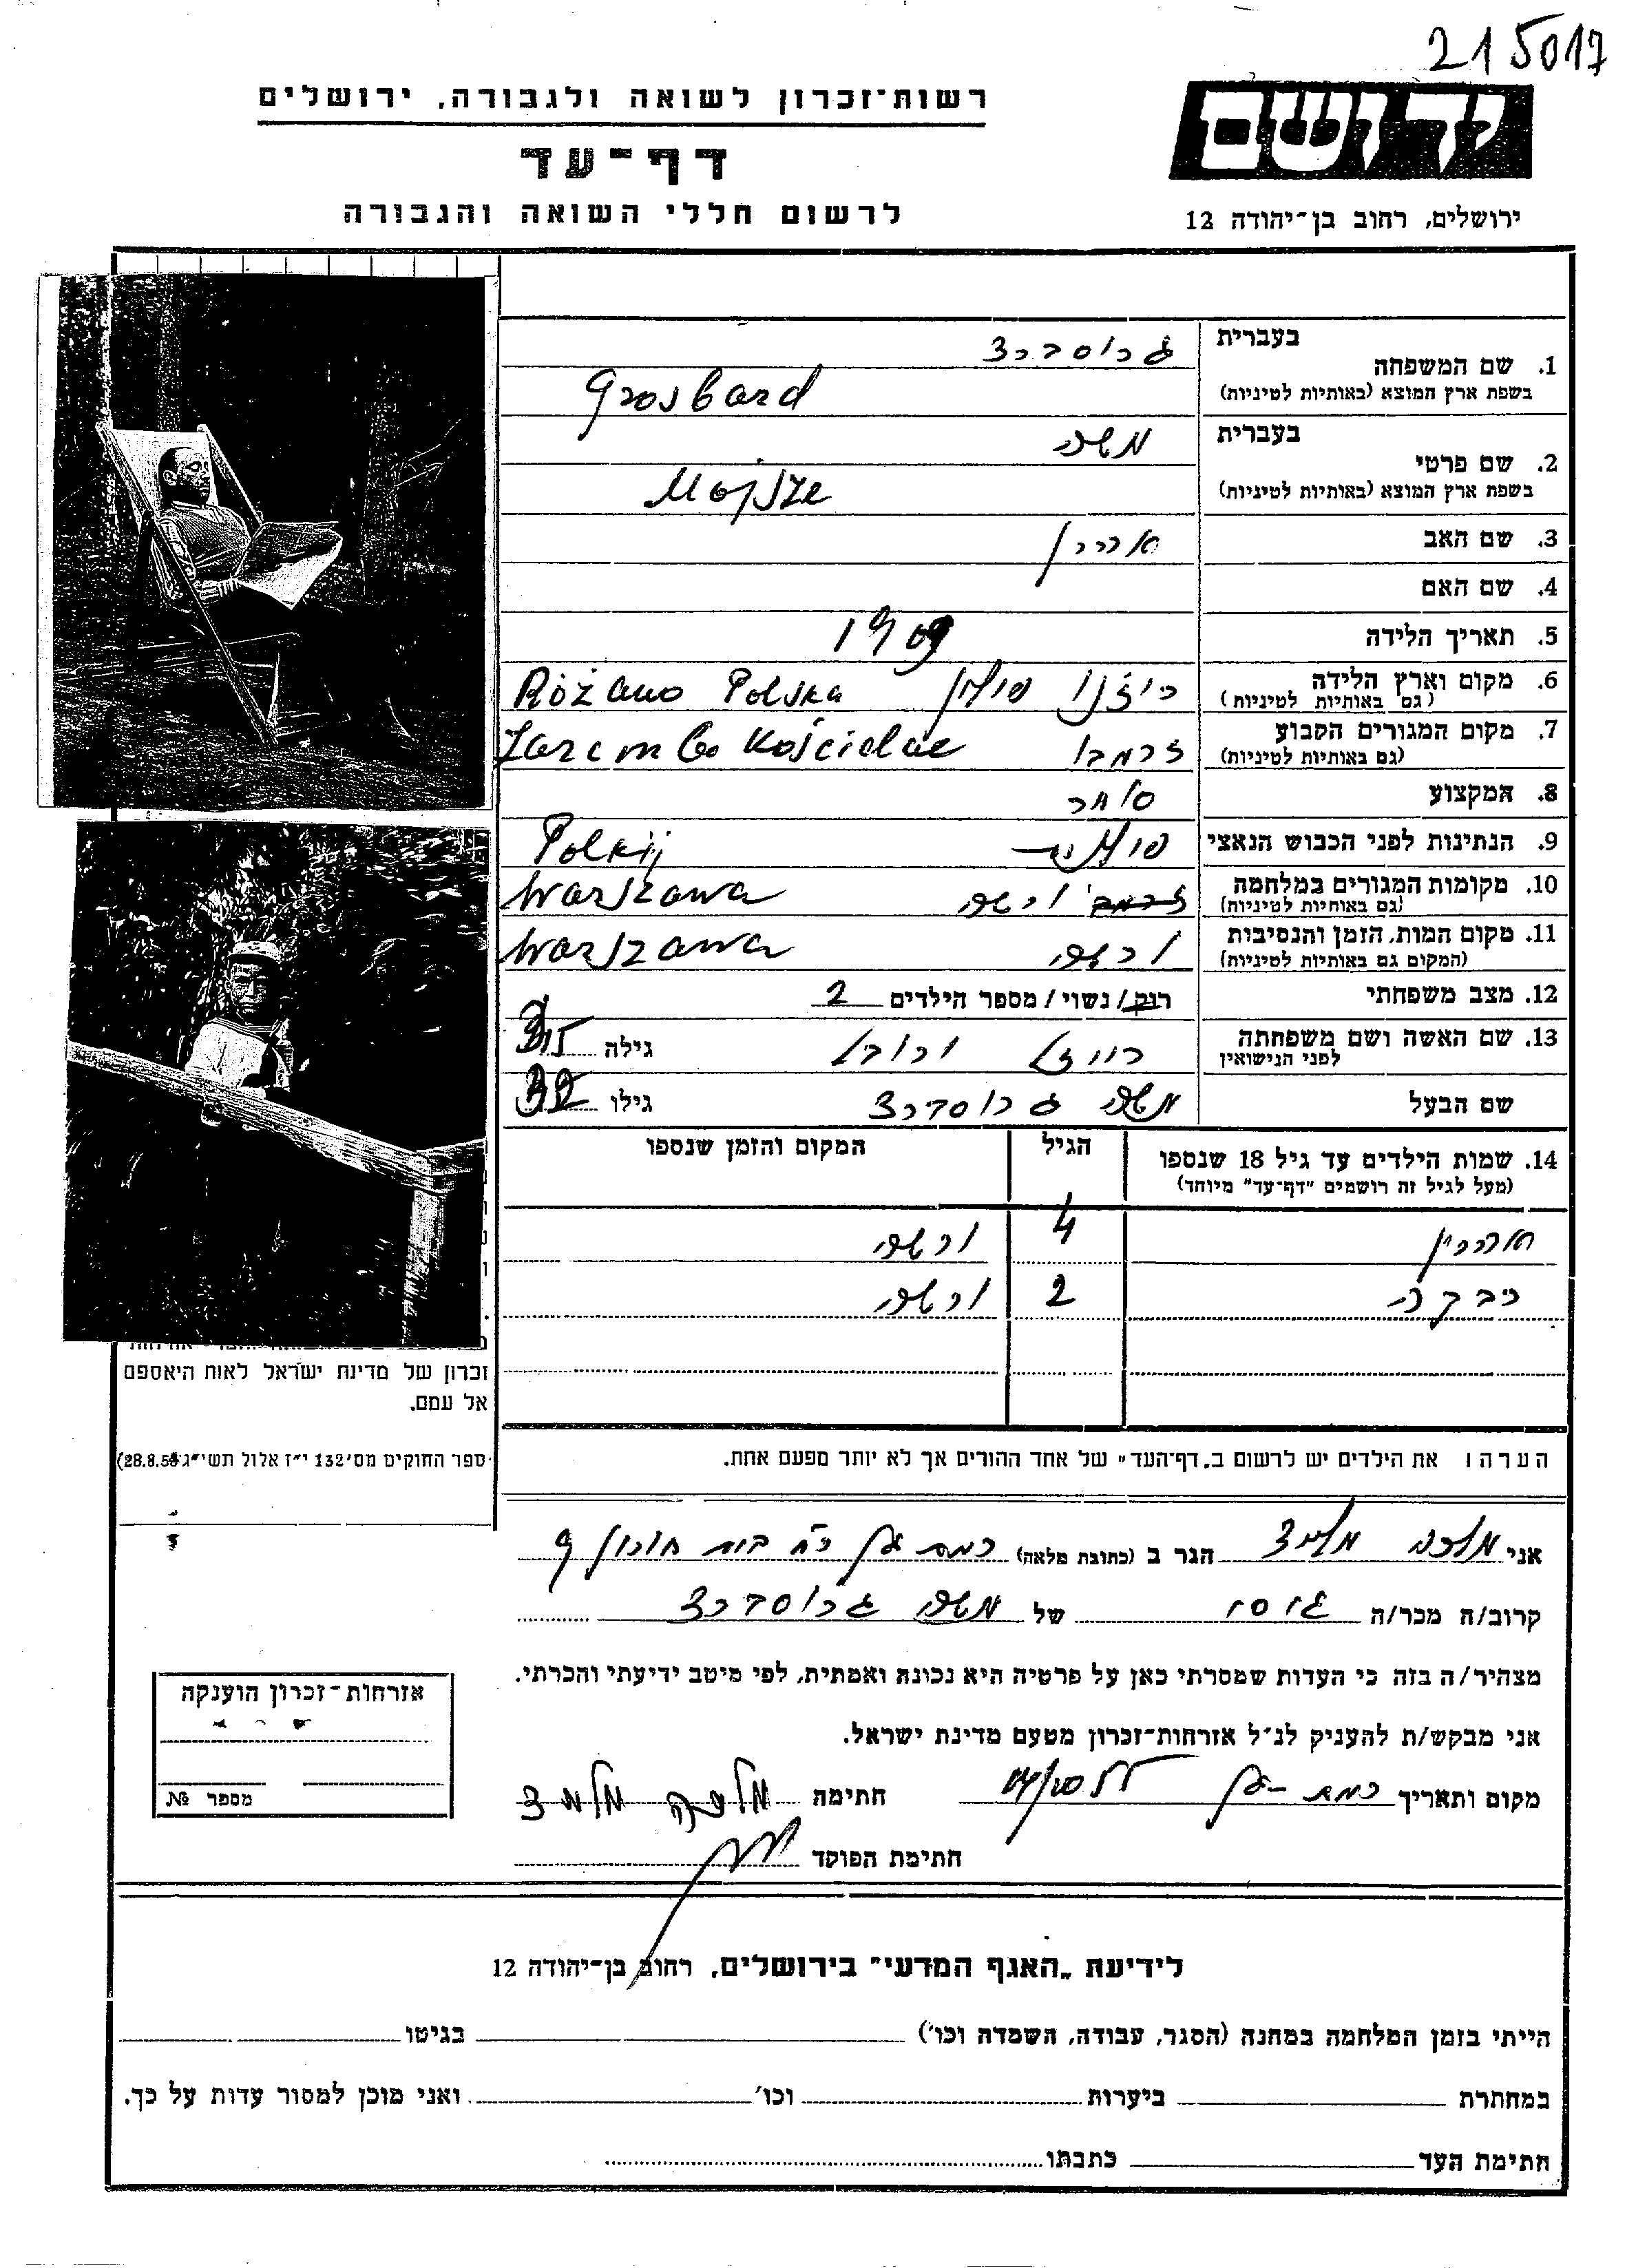 215017
רשות־זכרון לשואה ולגבורה, ירושלים
יד ושם
דף־עד
לרשום חללי השואה והגבורה
ירושלים, רחוב בן־יהודה 12
בעברית גרוסברד
1. שם המשפחה
בשפת ארץ המוצא (באותיות לטיניות) Grosbard
בעברית משה
2. שם פרטי
בשפת ארץ המוצא (באותיות לטיניות) Mojsze
3. שם האב אהרן
4. שם האם
5. תאריך הלידה 1909
6. מקום וארץ הלידה רוז'נו פולין Różano Polska
(גם באותיות לטיניות)
7. מקום המגורים הקבוע זרמבו Zarembo Kościelne
(גם באותיות לטיניות)
8. המקצוע סוחר
9. הנתינות לפני הכבוש הנאצי פולנית
10. מקומות המגורים במלחמה ורשה Warszawa
(גם באותיות לטיניות)
11. מקום המות, הזמן והנסיבות ורשה Warszawa
(המקום גם באותיות לטיניות)
12. מצב משפחתי רווק/ נשוי/ מספר הילדים 2
13. שם האשה ושם משפחתה גילה
לפני הנישואין
שם הבעל משה גרוסברד גילו
14. שמות הילדים עד גיל 18 שנספו הגיל המקום והזמן שנספו
(מעל לגיל זה רושמים "דף־עד" מיוחד)
אהרון 4 ורשה
רבקה 2 ורשה
זכרון של מדינת ישראל לאות היאספם
אל עמם.
ספר החוקים מס' 132 י"ז אלול תשי"ג 28.8.53)
הערה: את הילדים יש לרשום ב„דף־העד" של אחד ההורים אך לא יותר מפעם אחת.
אני מלכה מלמד הגר ב (כתובת מלאה) רמת גן רח' בית חורון 9
קרוב/ה מכר/ה גיסו של משה גרוסברד
מצהיר/ה בזה כי העדות שמסרתי כאן על פרטיה היא נכונה ואמתית, לפי מיטב ידיעתי והכרתי.
אני מבקש/ת להעניק לנ"ל אזרחות־זכרון מטעם מדינת ישראל.
אזרחות־זכרון הוענקה
מספר №
מקום ותאריך רמת־גן חתימה מלכה מלמד
חתימת הפוקד
לידיעת „האגף המדעי" בירושלים, רחוב בן־יהודה 12
הייתי בזמן המלחמה במחנה (הסגר, עבודה, השמדה וכו') בגיטו
במחתרת ביערות וכו' ואני מוכן למסור עדות על כך.
חתימת העד כתבתו